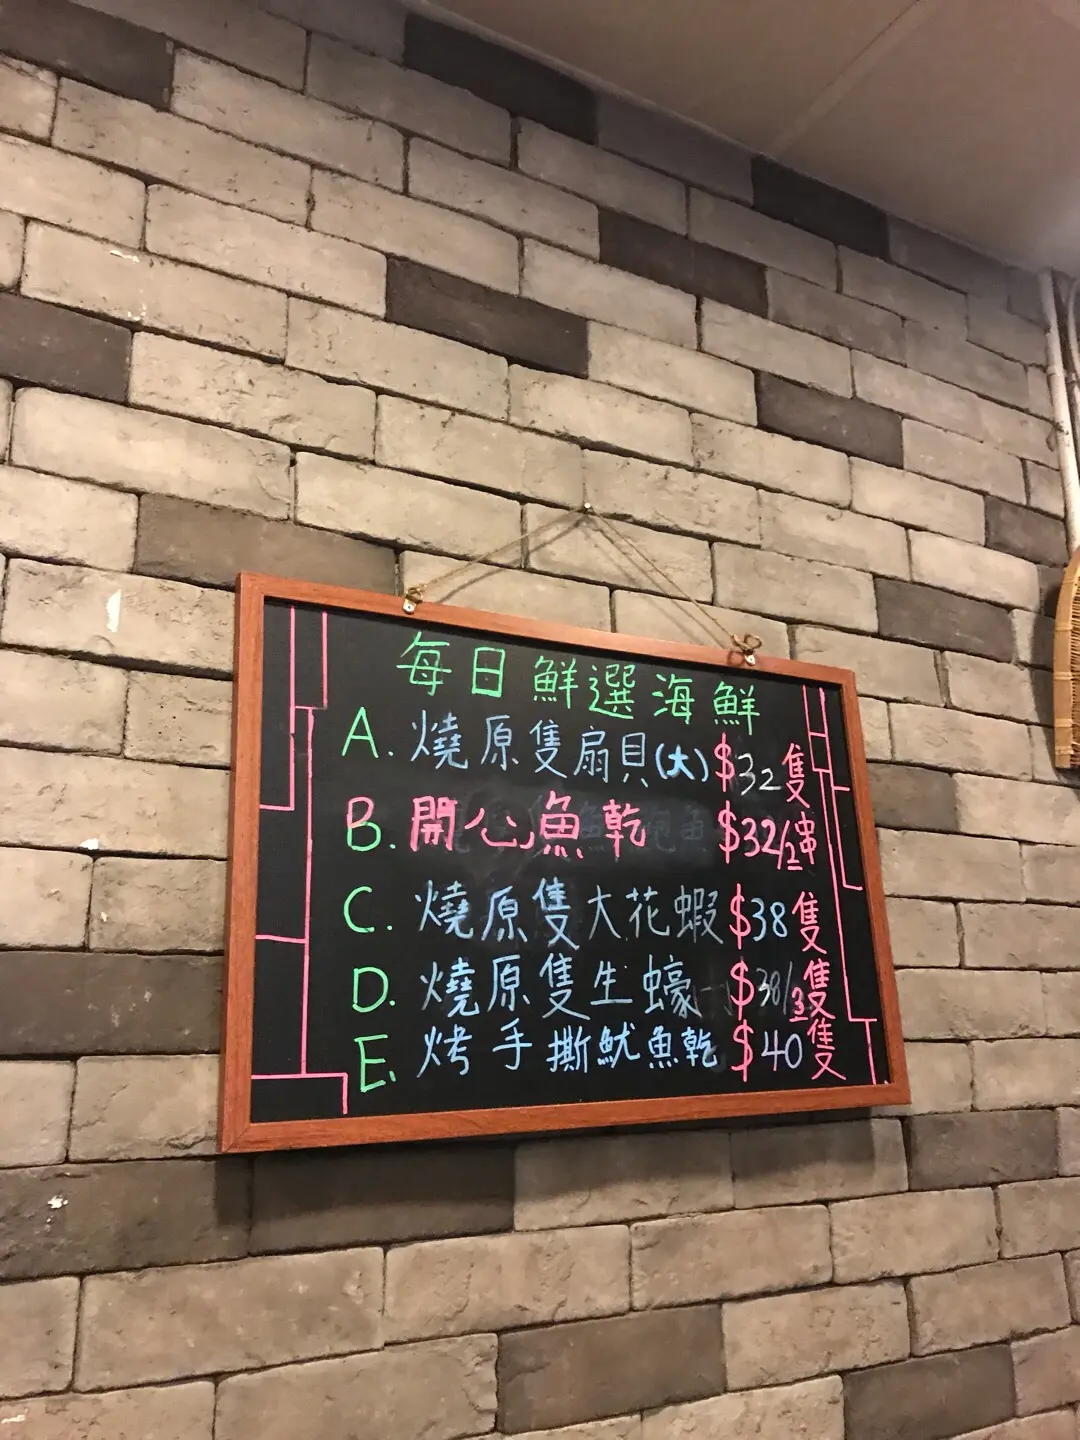 每日鮮選海鮮
A. 燒原隻扇貝(大) $32隻
B. 開心魚乾 $32/2串
C. 燒原隻大花蝦 $38隻
D. 燒原隻生蠔 $38/3隻
E. 烤手撕魷魚乾 $40隻